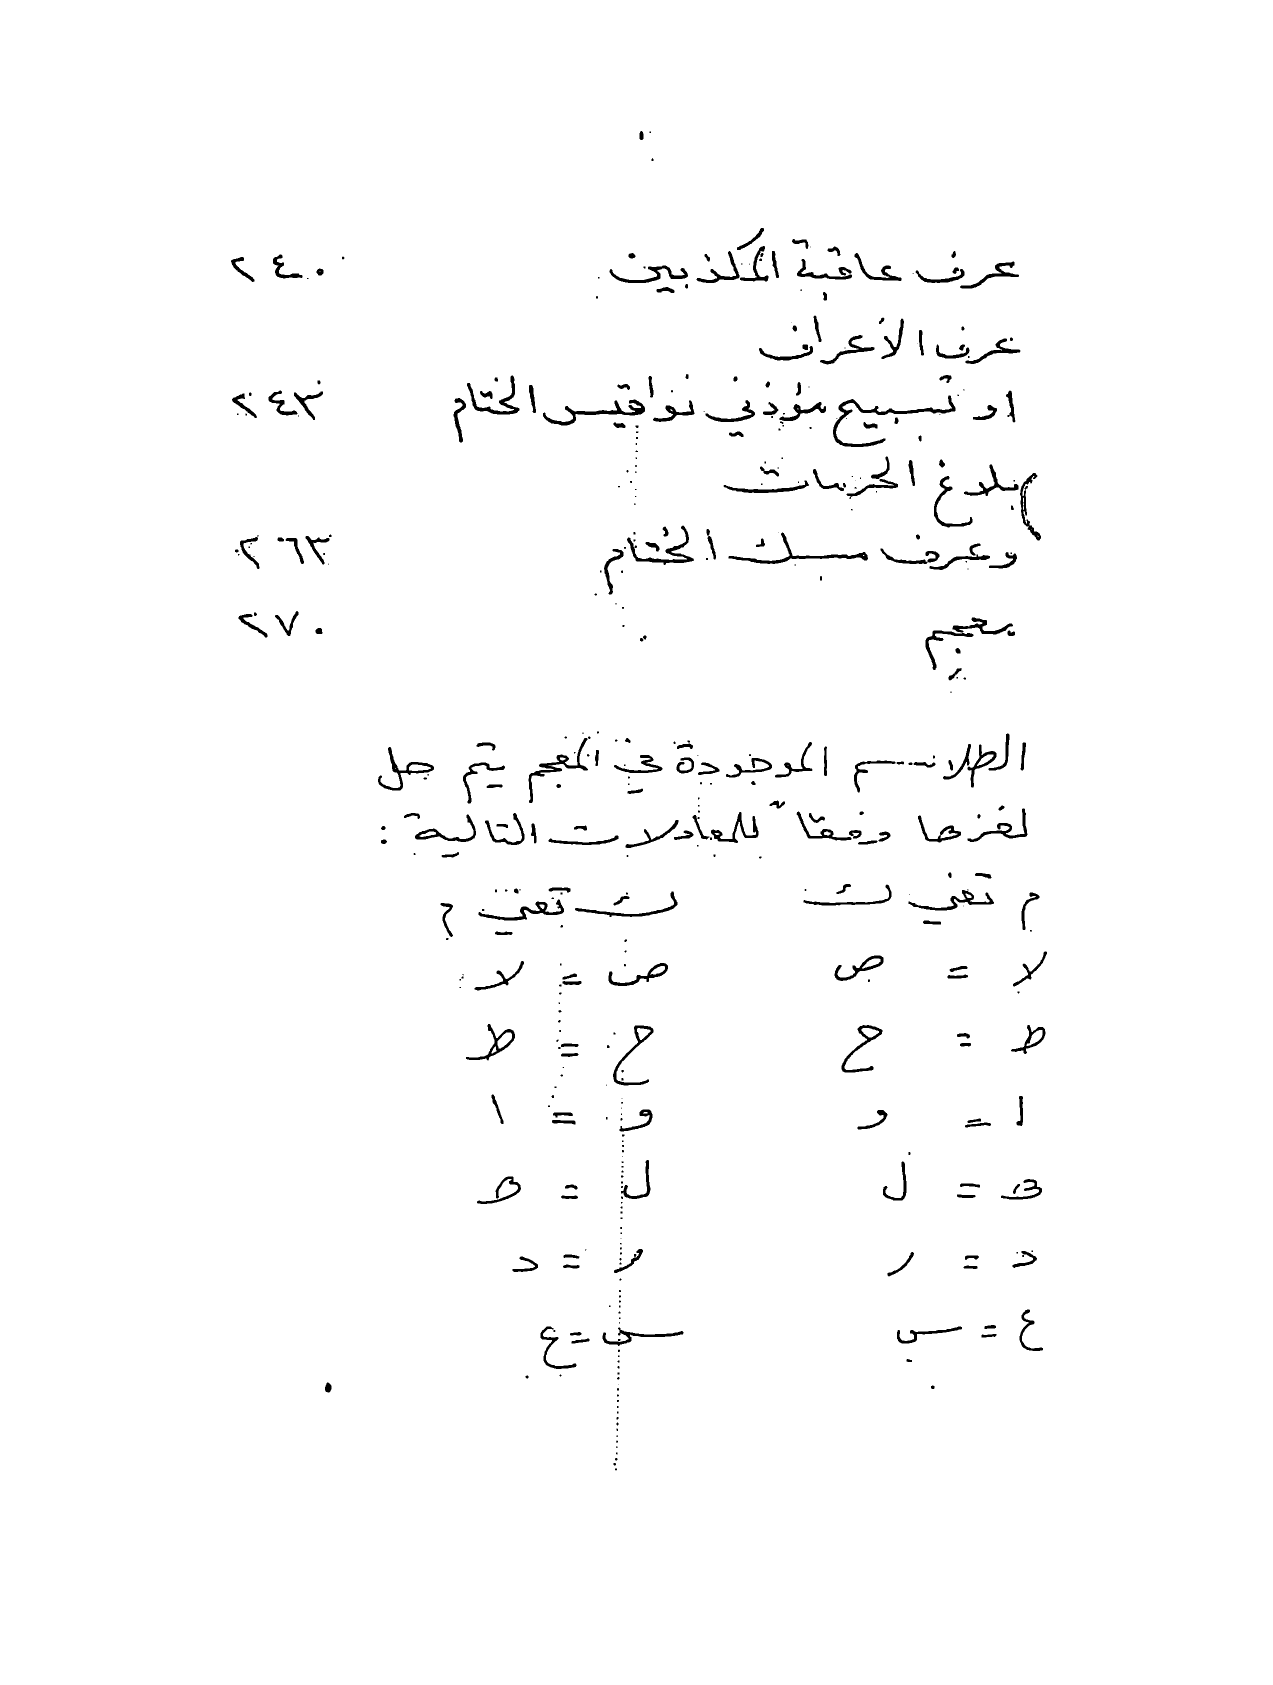 عرف عاقبة المكذبين ٢٤٠
عرف الأعراف
او تسبيح مؤذني نواقيس الختام ٢٤٣
بلاغ الحرمات
وعرف مسك الختام ٢٦٣
معجم ٢٧٠
الطلاسم الموجودة في المعجم يتم حل
لغزها وفقاً للمعادلات التالية :
م تعني ك ك تعني م
لا = ص ص = لا
ط = ح ح = ط
ا = و و = ا
ه = ل ل = ه
د = ر ر = د
ع = س س = ع